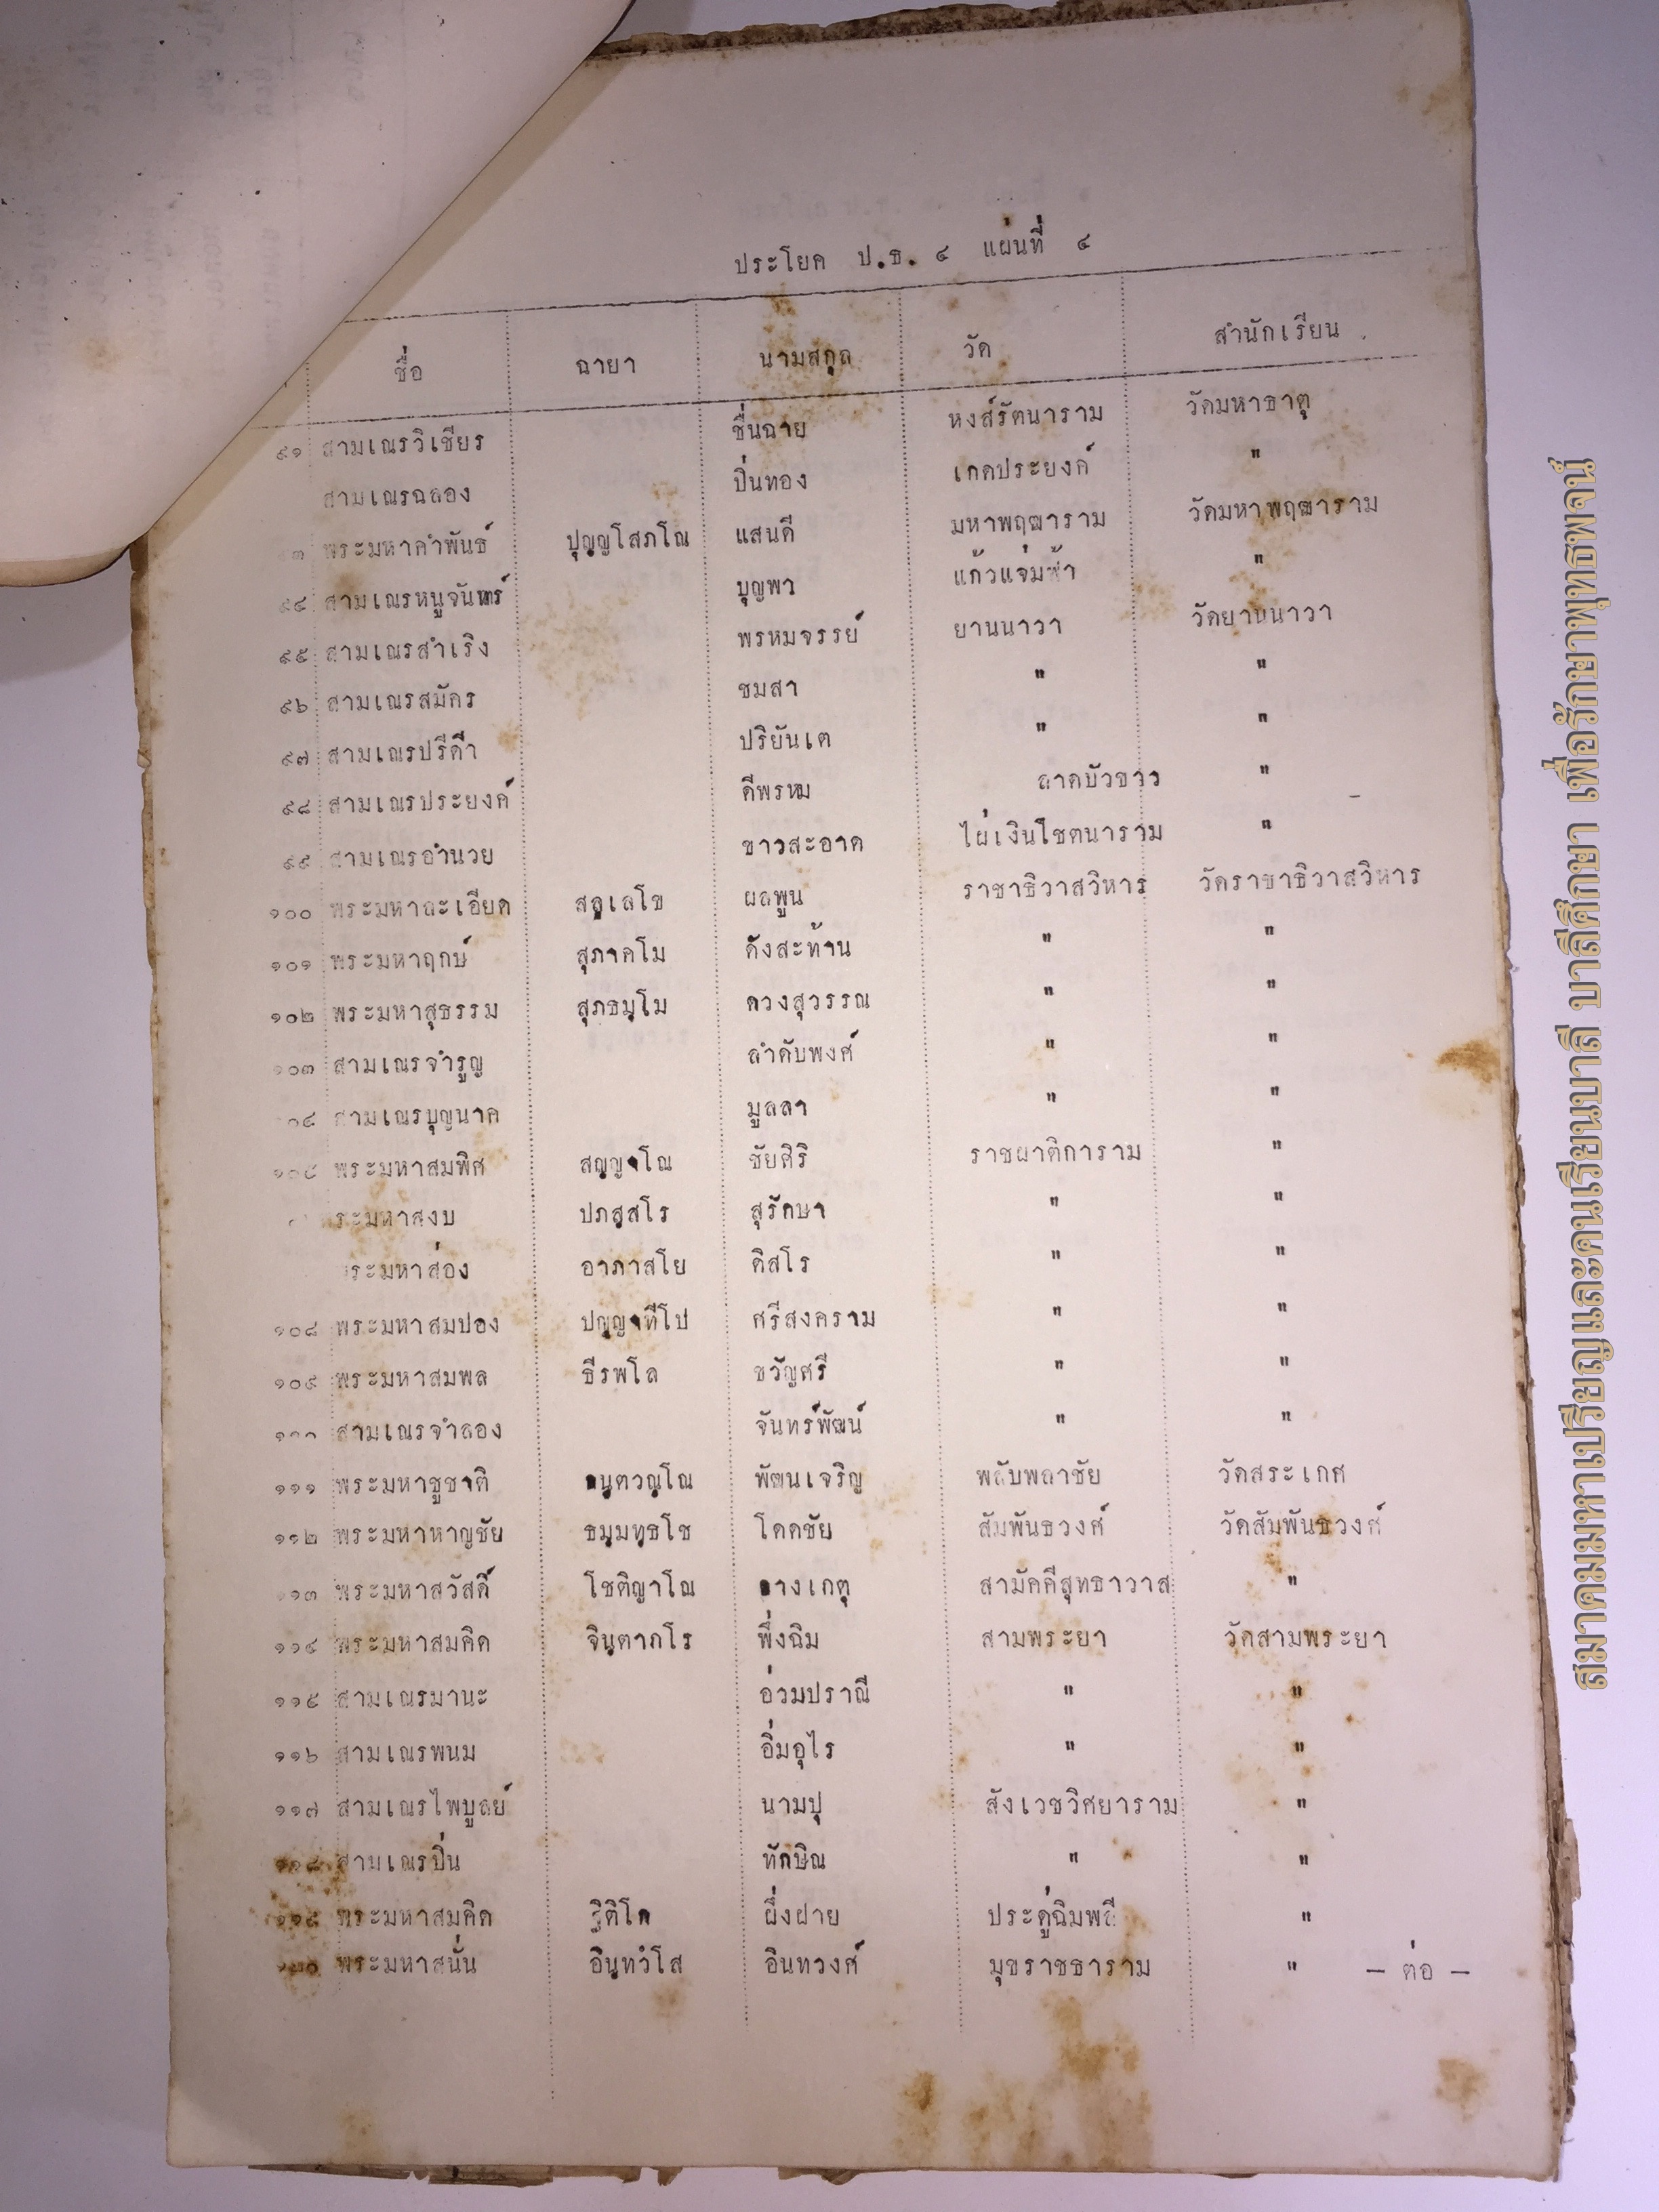 ประโยค ป.ธ. ๔ แผ่นที่ ๔
ชื่อ ฉายา นามสกุล วัด สำนักเรียน
๙๑ สามเณรวิเชียร ชื่นฉาย หงส์รัตนาราม วัดมหาธาตุ
สามเณรฉลอง ปิ่นทอง เกตประยงค์ "
๓ พระมหาคำพันธ์ ปุญฺญโสภโณ แสนดี มหาพฤฒาราม วัดมหาพฤฒาราม
๙๔ สามเณรหนูจันทร์ บุญพา แก้วแจ่มฟ้า "
๙๕ สามเณรสำเริง พรหมจรรย์ ยานนาวา วัดยานนาวา
๙๖ สามเณรสมัคร ชมสา " "
๙๗ สามเณรปรีดี ปริยันเต " "
๙๘ สามเณรประยงค์ ดีพรหม ลาดบัวขาว "
๙๙ สามเณรอำนวย ขาวสะอาด ไผ่เงินโชตนาราม "
๑๐๐ พระมหาละเอียด สลฺเลโข ผลพูน ราชาธิวาสวิหาร วัดราชาธิวาสวิหาร
๑๐๑ พระมหาฤกษ์ สุภาคโม ดังสะท้าน " "
๑๐๒ พระมหาสุธรรม สุภธมฺโม ดวงสุวรรณ " "
๑๐๓ สามเณรจำรูญ ลำดับพงศ์ " "
๐๔ สามเณรบุญนาค มูลลา " "
๑๐๕ พระมหาสมพิศ สญฺญาโณ ชัยศิริ ราชผาติการาม "
ระมหาสงบ ปภสฺสโร สุรักษา " "
ระมหาส่อง อาภาสโย ดิสโร " "
๑๐๘ พระมหาสมปอง ปญฺญาทีโป ศรีสงคราม " "
๑๐๙ พระมหาสมพล ธีรพโล ขวัญศรี " "
๑๑๐ สามเณรจำลอง จันทร์พัฒน์ " "
๑๑๑ พระมหาชูชาติ นฺตวณฺโณ พัฒนเจริญ พลับพลาชัย วัดสระเกศ
๑๑๒ พระมหาหาญชัย ธมฺมทฺธโช โคตชัย สัมพันธวงศ์ วัดสัมพันธวงศ์
๑๑๓ พระมหาสวัสดิ์ โชติญาโณ างเกตุ สามัคคีสุทธาวาส "
๑๑๔ พระมหาสมคิด จินฺตากโร พึ่งฉิม สามพระยา วัดสามพระยา
๑๑๕ สามเณรมานะ อ่วมปราณี " "
๑๑๖ สามเณรพนม อิ่มอุไร " "
๑๑๗ สามเณรไพบูลย์ นามปุ สังเวชวิศยาราม "
๑๑๘ สามเณรปิ่น ทักษิณ " "
๑๑๙ พระมหาสมคิด ฐิติโก ผึ่งฝาย ประดู่ฉิมพลี "
๑๒๐ พระมหาสนั่น อินฺทวํโส อินทวงศ์ มุขราชธาราม "
– ต่อ –
สมาคมมหาเปรียญและคนเรียนบาลี บาลีศึกษา เพื่อรักษาพุทธพจน์